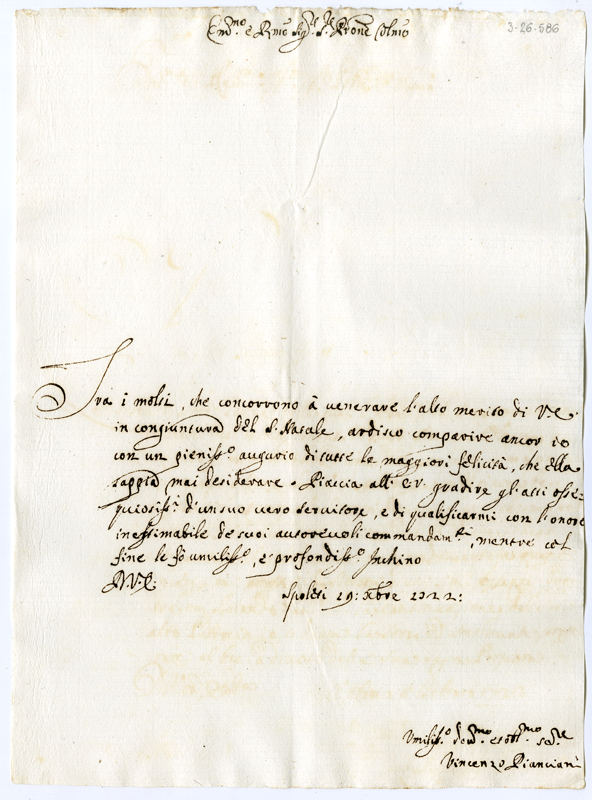 Em.mo e Rmo Sig.r Sr. Prone Colmo
3-26-586
Trà i molti, che concorrono à venerare l'alto merito di V.E.
in congiuntura del S. Natale, ardisco comparire ancor io
con un pieniss.o augurio di tutte le maggiori felicità, che ella
sappia mai desiderare. Piaccia all' E.V. gradire gl'atti osse-
quiosiss.i d'un suo vero servitore, e di qualificarmi con l'onore
inestimabile de suoi autorevoli commandam.ti, mentre col
fine le fò umiliss.o, e profondiss.o Inchino
D.V.E.
Spoleti 19: Xbre 1722:
Umiliss.o dev.mo et obb.mo se.re
Vincenzo Pianciani